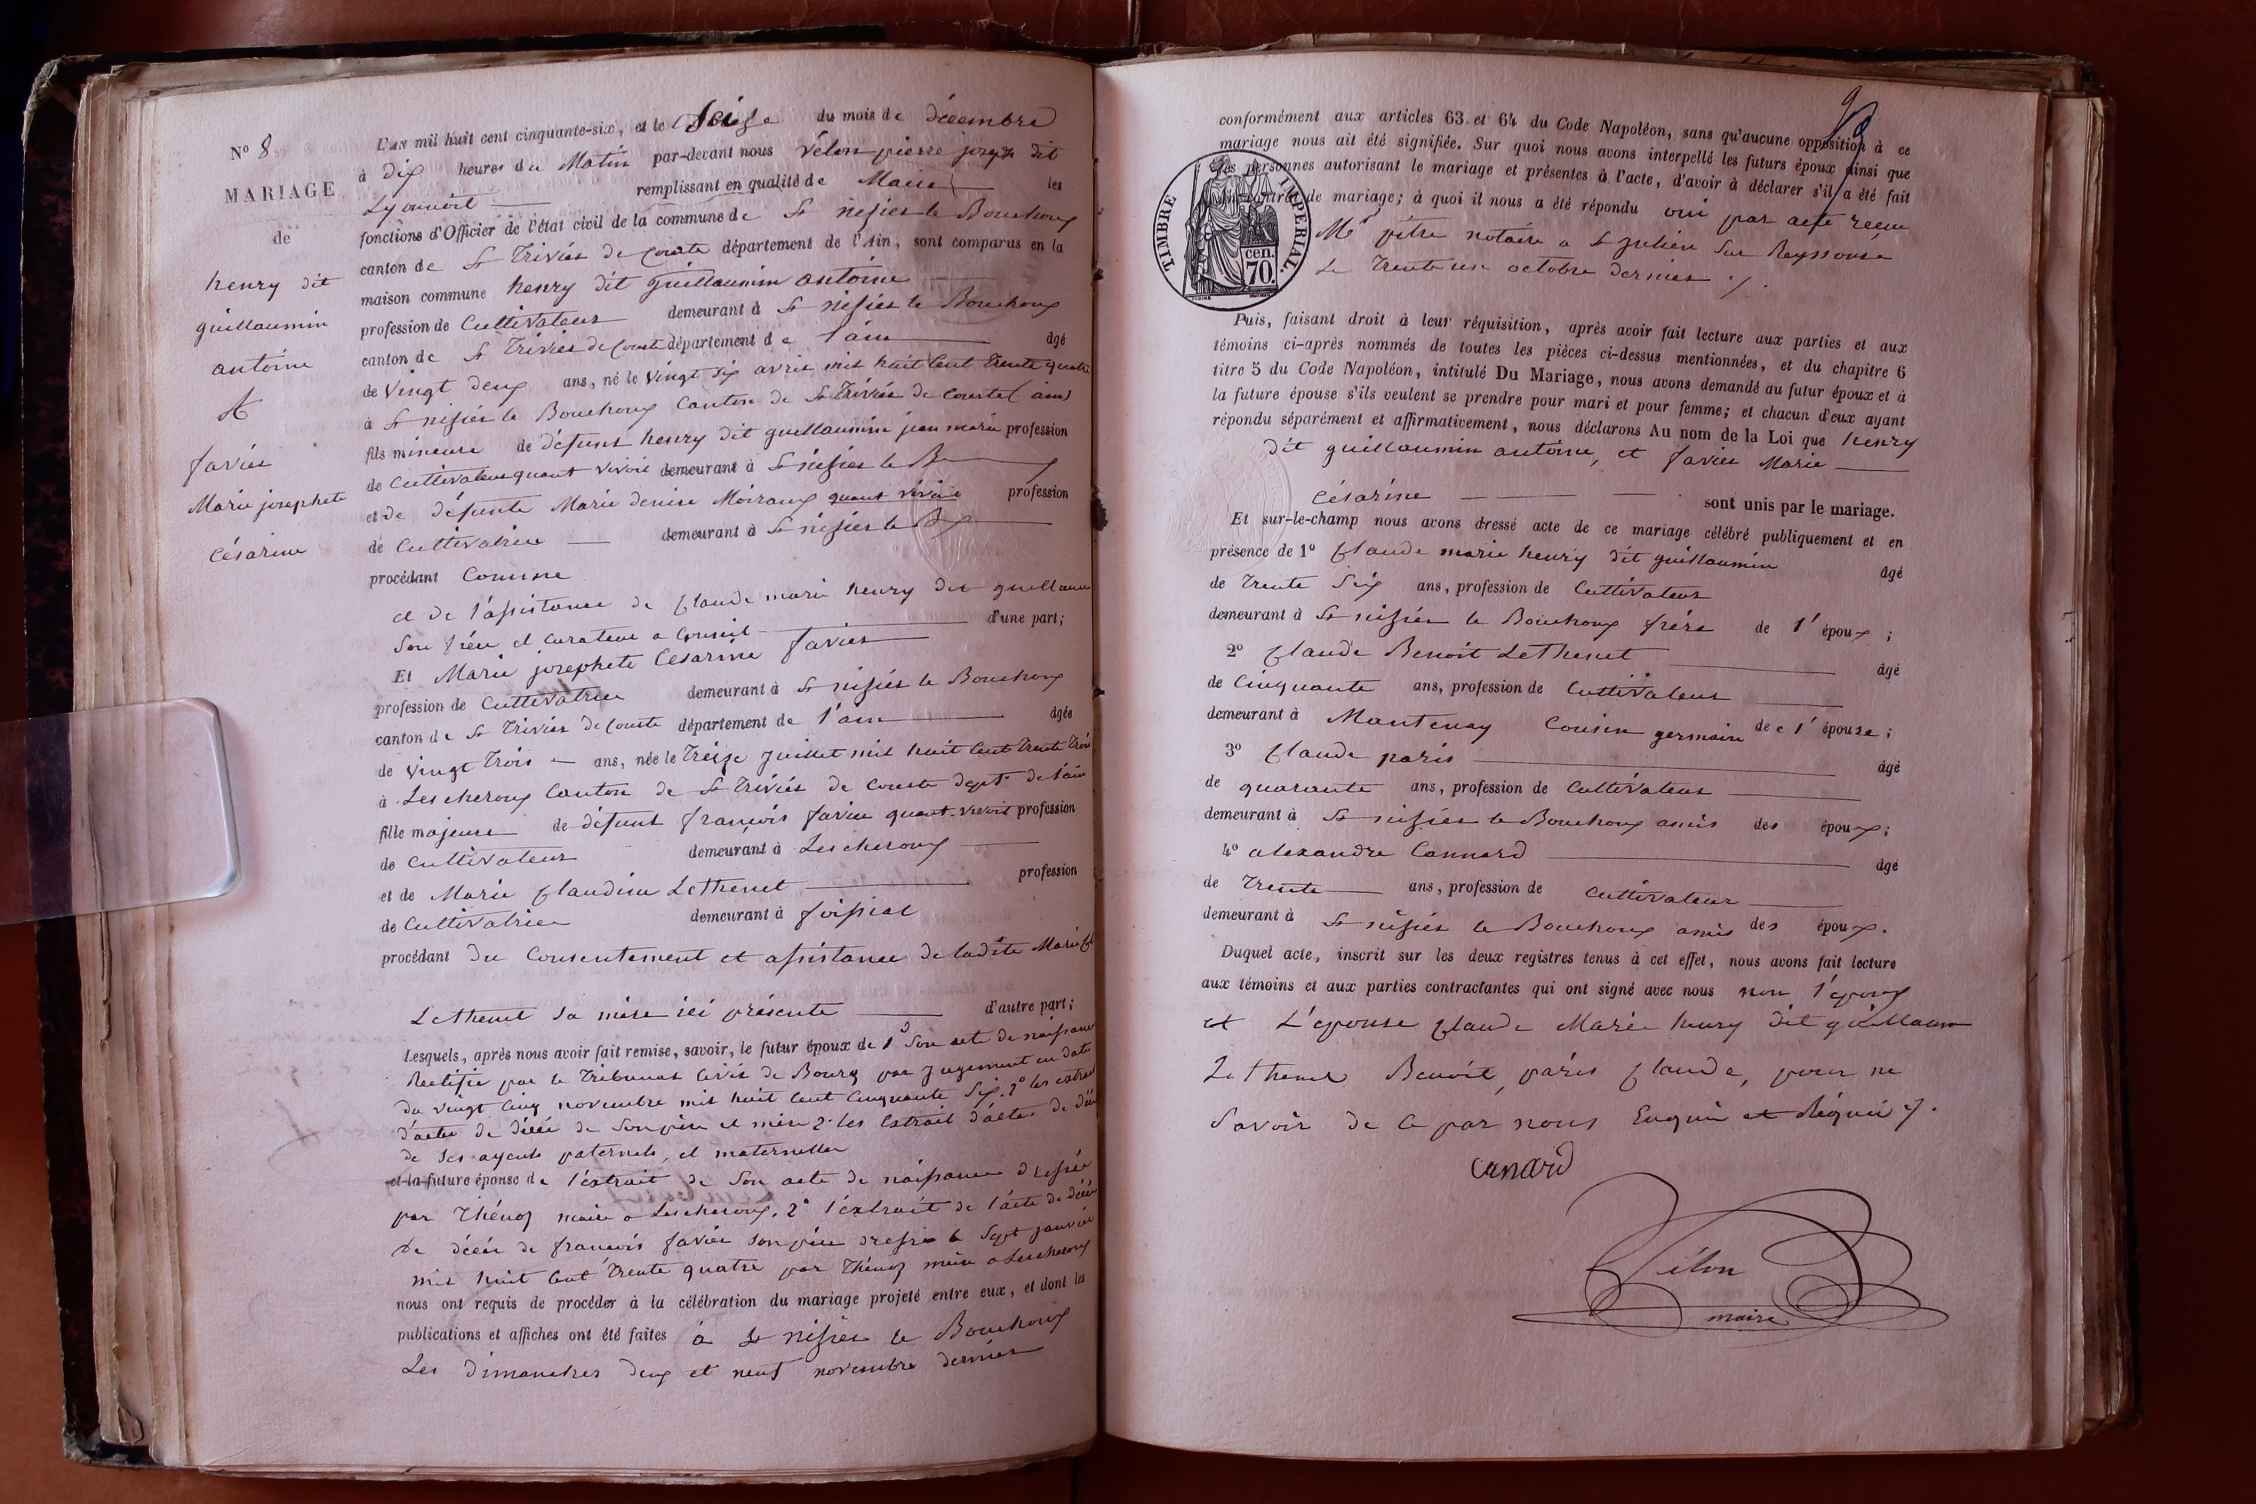 N° 8
MARIAGE
de
henry dit
guillaumin
antoine
et
favier
Marie josephete
Césarine
L'an mil huit cent cinquante-six, et le Seize du mois de décembre
à dix heures du Matin par-devant nous Vélon pierre joseph dit
Lyonnois remplissant en qualité de Maire les
fonctions d'Officier de l'état civil de la commune de St nisier le Bouchoux
canton de St Trivier de Courte département de l'Ain, sont comparus en la
maison commune henry dit guillaumin antoine
profession de Cultivateur demeurant à St nisier le Bouchoux
canton de St Trivier de Courte département de l'ain âgé
de vingt deux ans, né le vingt six avril mil huit Cent trente quatre
à St nisier le Bouchoux Canton de St Trivier de Courte (ain)
fils mineure de défunt henry dit guillaumin jean marie profession
de Cultivateur quant vivoit demeurant à St nisier le B x
et de défunte Marie denise Moiraux quant vivoit profession
de Cultivatrice demeurant à St nisier le Bx
procédant Comme
et de l'assistance de Claude marie henry dit guillaumin
Son frère et Curateur a Conseil d'une part;
Et Marie josephete Césarine favier
profession de Cultivatrice demeurant à St nisier le Bouchoux
canton de St Trivier de Courte département de l'ain âgée
de vingt Trois ans, née le Treize juillet mil huit Cent trente Trois
à Lescheroux Canton de St Trivier de Courte dept de l'ain
fille majeure de défunt françois favier quant vivoit profession
de Cultivateur demeurant à Lescheroux
et de Marie Claudine Lethenet profession
de Cultivatrice demeurant à foissiat
procédant du Consentement et assistance de ladite Marie Cl
Lethenet Sa mère ici présente d'autre part;
Lesquels, après nous avoir fait remise, savoir, le futur époux de 1° Son acte de naissance
Rectifié par le Tribunal Civil de Bourg par jugement en date
du vingt Cinq novembre mil huit Cent Cinquante Six, 2° les extrait
d'actes de décé de Son père et mère 2° les Extrait d'actes de décé
de Ses ayeuls paternels, et maternelles
et la future épouse de l'extrait de Son acte de naissance dressée
par Thénoz maire a Lescheroux, 2° l'extrait de l'acte de décé
De décée de françois favier Son père dressé le Sept janvier
mil huit Cent Trente quatre par Thénoz maire a Lescheroux
nous ont requis de procéder à la célébration du mariage projeté entre eux, et dont les
publications et affiches ont été faites à St nisier le Bouchoux
Les dimanches deux et neuf novembre dernier
9
TIMBRE IMPÉRIAL.
cen. 70.
conformément aux articles 63 et 64 du Code Napoléon, sans qu'aucune opposition à ce
mariage nous ait été signifiée. Sur quoi nous avons interpellé les futurs époux ainsi que
les personnes autorisant le mariage et présentes à l'acte, d'avoir à déclarer s'il a été fait
contrat de mariage; à quoi il nous a été répondu oui par acte reçu
Me pitre notaire a St julien Sur Reyssouse
Le Trente un octobre dernier
Puis, faisant droit à leur réquisition, après avoir fait lecture aux parties et aux
témoins ci-après nommés de toutes les pièces ci-dessus mentionnées, et du chapitre 6
titre 5 du Code Napoléon, intitulé Du Mariage, nous avons demandé au futur époux et à
la future épouse s'ils veulent se prendre pour mari et pour femme; et chacun d'eux ayant
répondu séparément et affirmativement, nous déclarons Au nom de la Loi que henry
dit guillaumin antoine, et favier Marie
Césarine sont unis par le mariage.
Et sur-le-champ nous avons dressé acte de ce mariage célébré publiquement et en
présence de 1° Claude marie henry dit guillaumin âgé
de Trente Six ans, profession de Cultivateur
demeurant à St nisier le Bouchoux frère de l'époux;
2° Claude Benoit Lethenet âgé
de Cinquante ans, profession de Cultivateur
demeurant à Mantenay Cousin germain de l'épouse;
3° Claude paris âgé
de quarante ans, profession de Cultivateur
demeurant à St nisier le Bouchoux amis des époux;
4° alexandre Cannard âgé
de Trente ans, profession de Cultivateur
demeurant à St nisier le Bouchoux amis des époux.
Duquel acte, inscrit sur les deux registres tenus à cet effet, nous avons fait lecture
aux témoins et aux parties contractantes qui ont signé avec nous non l'époux
et L'epouse Claude Marie henry dit guillaumin
Lethenet Benoit, paris Claude, pour ne
Savoir de ce par nous Enquis et Réquis
canard
Vélon
maire